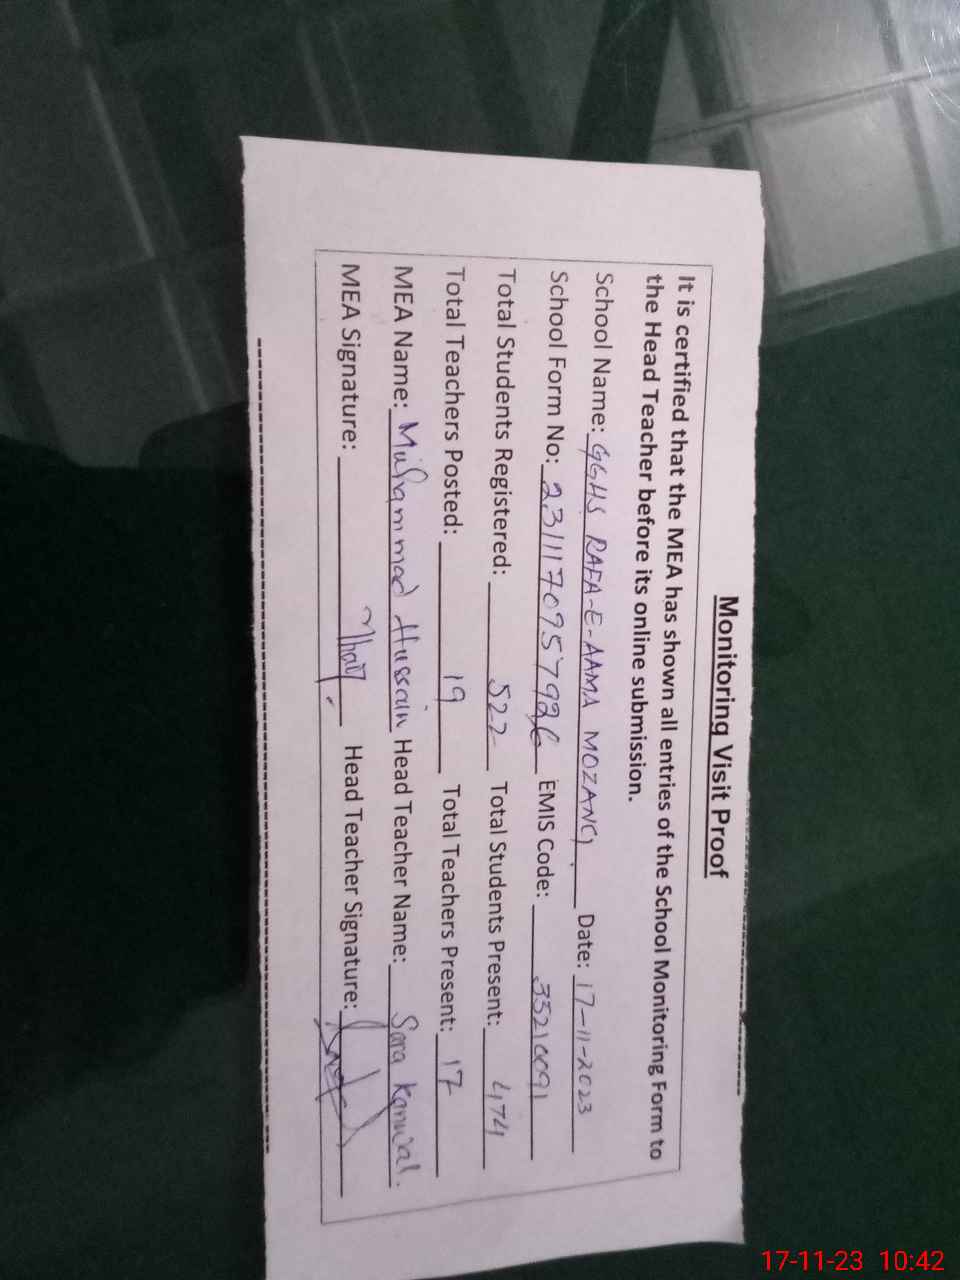 Monitoring Visit Proof
It is certified that the MEA has shown all entries of the School Monitoring Form to
the Head Teacher before its online submission.
School Name: GGHS RAFA-E-AAMA MOZANG Date: 17-11-2023
School Form No: EMIS Code: 35210091
Total Students Registered: 522 Total Students Present: 474
Total Teachers Posted: 19 Total Teachers Present: 17
MEA Name: Muhammad Hussain Head Teacher Name: Sara Kanwal.
MEA Signature: Head Teacher Signature:
17-11-23 10:42